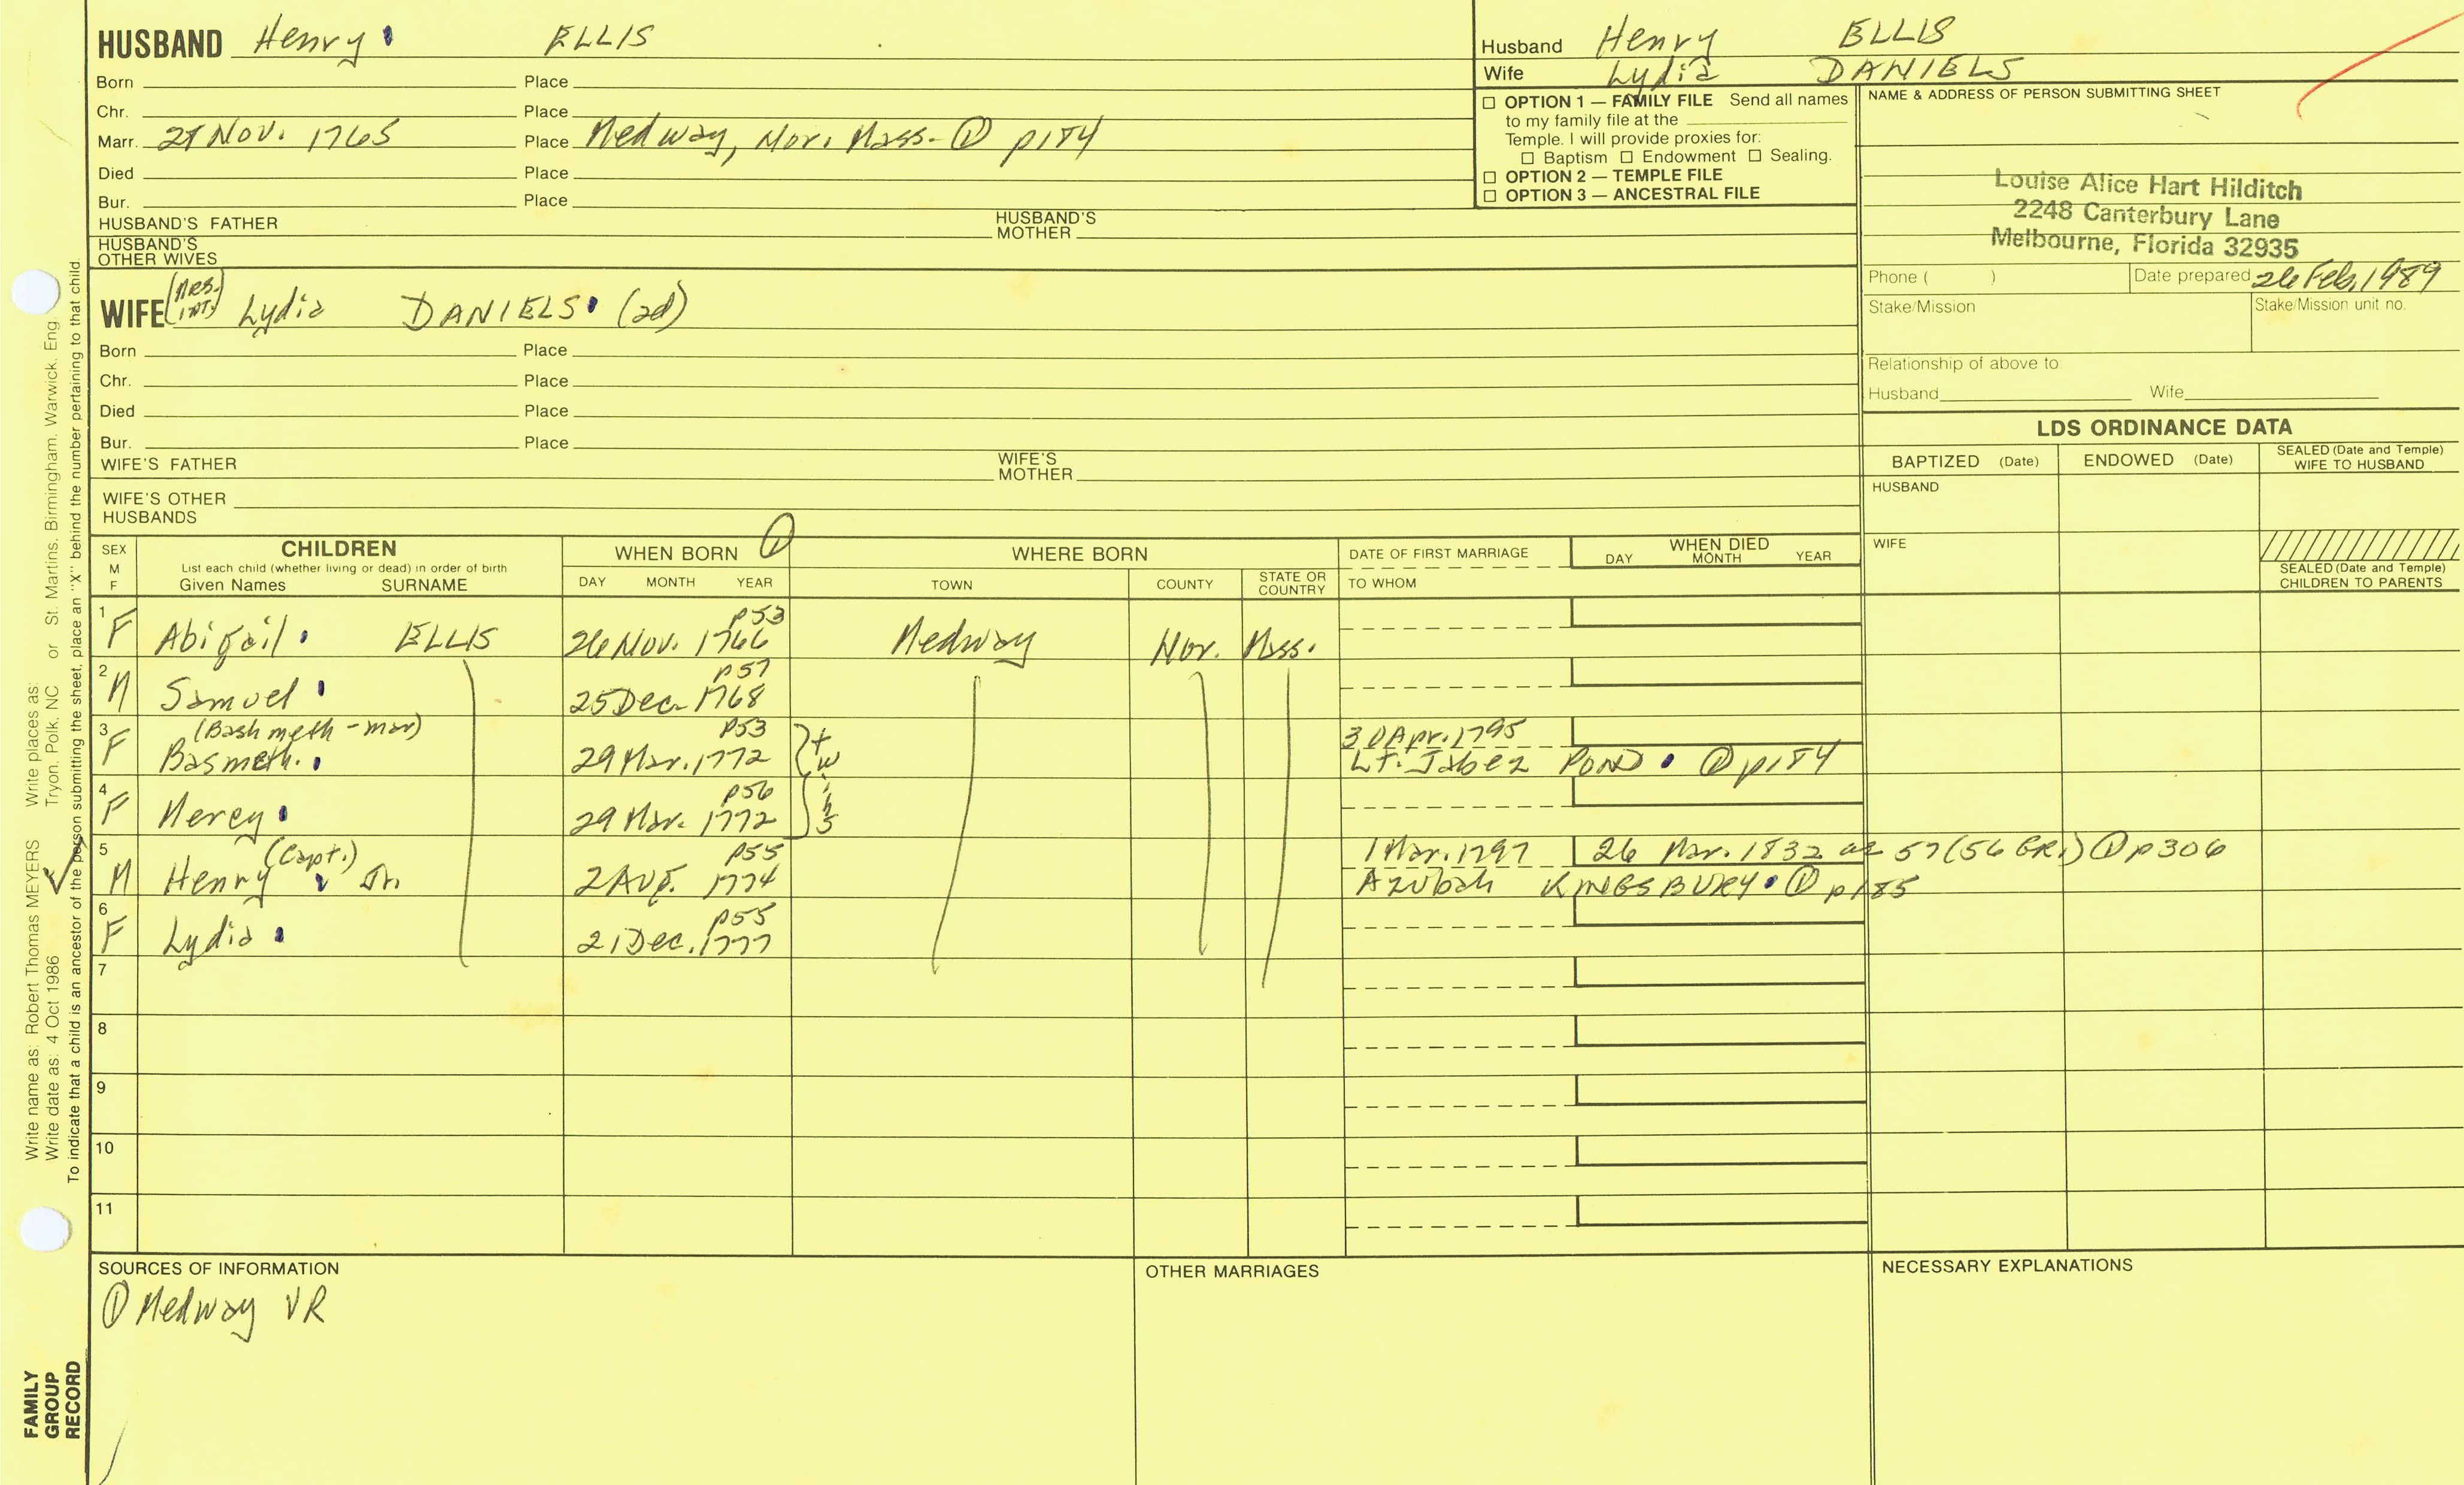 HUSBAND Henry ELLIS
Born Place
Chr. Place
Marr. 28 Nov. 1765 Place Medway, Nor. Mass. ① p184
Died Place
Bur. Place
HUSBAND'S FATHER HUSBAND'S MOTHER
HUSBAND'S OTHER WIVES
WIFE (Mrs. int.) Lydia DANIELS (2d)
Born Place
Chr. Place
Died Place
Bur. Place
WIFE'S FATHER WIFE'S MOTHER
WIFE'S OTHER HUSBANDS
Husband Henry ELLIS
Wife Lydia DANIELS
☐ OPTION 1 — FAMILY FILE Send all names
to my family file at the
Temple. I will provide proxies for:
☐ Baptism ☐ Endowment ☐ Sealing.
☐ OPTION 2 — TEMPLE FILE
☐ OPTION 3 — ANCESTRAL FILE
NAME & ADDRESS OF PERSON SUBMITTING SHEET
Louise Alice Hart Hilditch
2248 Canterbury Lane
Melbourne, Florida 32935
Phone ( ) Date prepared 26 Feb. 1989
Stake/Mission Stake/Mission unit no.
Relationship of above to
Husband Wife
LDS ORDINANCE DATA
BAPTIZED (Date) ENDOWED (Date) SEALED (Date and Temple) WIFE TO HUSBAND
HUSBAND
WIFE
SEALED (Date and Temple) CHILDREN TO PARENTS
SEX M F
CHILDREN
List each child (whether living or dead) in order of birth
Given Names SURNAME
WHEN BORN ①
DAY MONTH YEAR
WHERE BORN
TOWN COUNTY STATE OR COUNTRY
DATE OF FIRST MARRIAGE
TO WHOM
WHEN DIED
DAY MONTH YEAR
1 F Abigail ELLIS p53 26 Nov. 1766 Medway Nor. Mass.
2 M Samuel p57 25 Dec. 1768
3 F (Bashmeth - mar) Basmeth p53 29 Mar. 1772 twins 30 Apr. 1795 Lt. Jabez POND ① p184
4 F Mercy p56 29 Mar. 1772
5 M Henry (Capt.) Jr. p55 2 Aug. 1774 1 Mar. 1797 26 Mar. 1832 ae 57 (56 GR1) ① p306
Azubah KINGSBURY ① p185
6 F Lydia p55 21 Dec. 1777
7
8
9
10
11
SOURCES OF INFORMATION
① Medway VR
OTHER MARRIAGES
NECESSARY EXPLANATIONS
Write name as: Robert Thomas MEYERS Write places as: Tryon, Polk, NC or St. Martins, Birmingham, Warwick, Eng.
Write date as: 4 Oct 1986
To indicate that a child is an ancestor of the person submitting the sheet, place an "X" behind the number pertaining to that child.
FAMILY
GROUP
RECORD